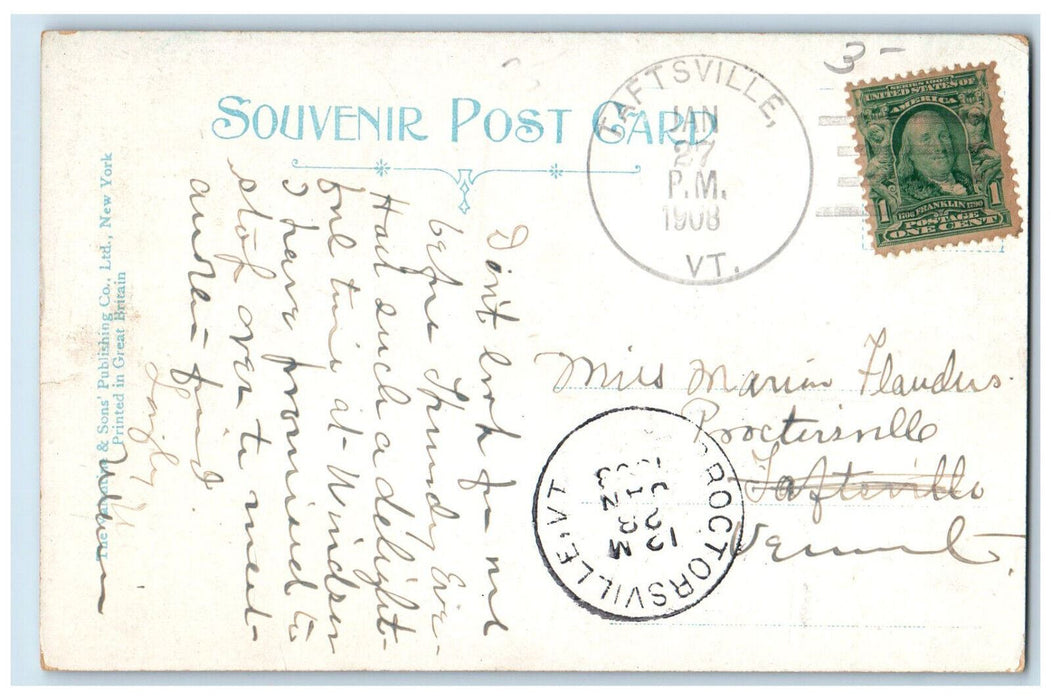 SOUVENIR POST CARD
3-
TAFTSVILLE,
JAN
27
P.M.
1908
VT.
SERIES 1902
UNITED STATES OF
AMERICA
1706 FRANKLIN 1790
1 POSTAGE 1
ONE CENT
The & Sons' Publishing Co., Ltd., New York
Printed in Great Britain
Don't look for me
before Thursday Eve-
Had such a delight-
ful time at Windsor
I have promised to
stop over to meet
another friend
Miss Marion Flanders.
Proctorsville
Taftsville
Vermont.
PROCTORSVILLE VT.
JAN
28
12 M
1908